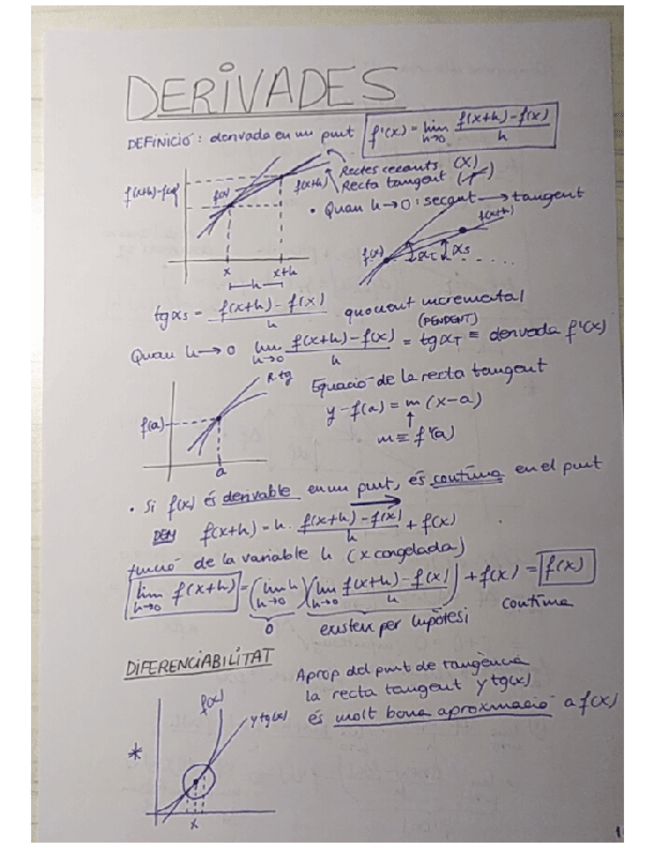 DERIVADES
DEFINICIÓ: derivada en un punt f'(x) = lim h→0 f(x+h) - f(x) / h
Rectes secants (X)
f(x+h)-f(x) f(x) f(x+h) Recta tangent
• Quan h→0: secant → tangent
f(x+h)
f(x) αT αS
x x+h
h
tg αS = f(x+h) - f(x) / h quocient incremental
(PENDENT)
Quan h→0 lim h→0 f(x+h) - f(x) / h = tg αT ≡ derivada f'(x)
R tg
Equació de la recta tangent
f(a) y - f(a) = m (x-a)
m ≡ f'(a)
a
• Si f(x) és derivable en un punt, és contínua en el punt
DEM f(x+h) = h · f(x+h) - f(x) / h + f(x)
funció de la variable h (x congelada)
lim h→0 f(x+h) = (lim h→0 h) (lim h→0 f(x+h) - f(x) / h) + f(x) = f(x)
0 existeix per hipòtesi contínua
DIFERENCIABILITAT
Aprop del punt de tangència
la recta tangent ytg(x)
és molt bona aproximació a f(x)
f(x)
ytg(x)
*
x
1